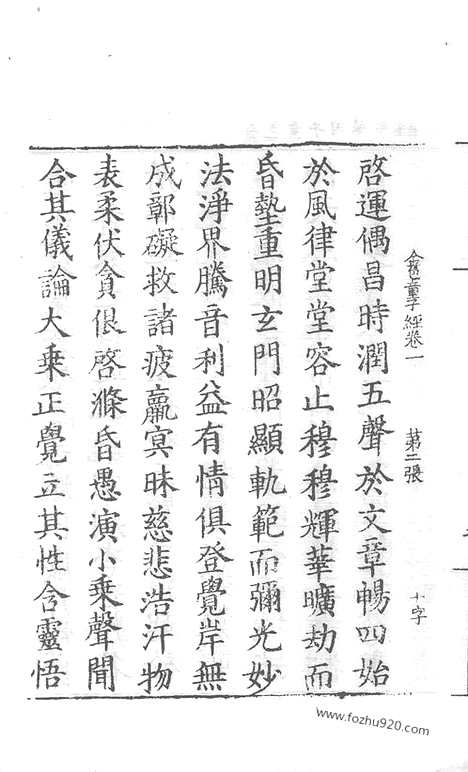 經卷一 第二張 十字
啓運偶昌時潤五聲於文章暢四始
於風律堂堂容止穆穆輝華曠劫而
昏墊重明玄門昭顯軌範而彌光妙
法淨界騰音利益有情俱登覺岸無
成鄣礙救諸疲羸冥昧慈悲浩汗物
表柔伏貪佷啓滌昏愚演小乘聲聞
合其儀論大乘正覺立其性含靈悟
www.fozhu920.com